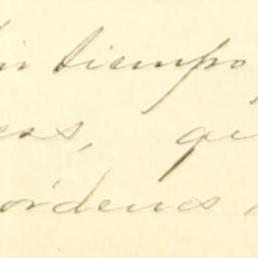 tiempo
eas, qu
órdenes